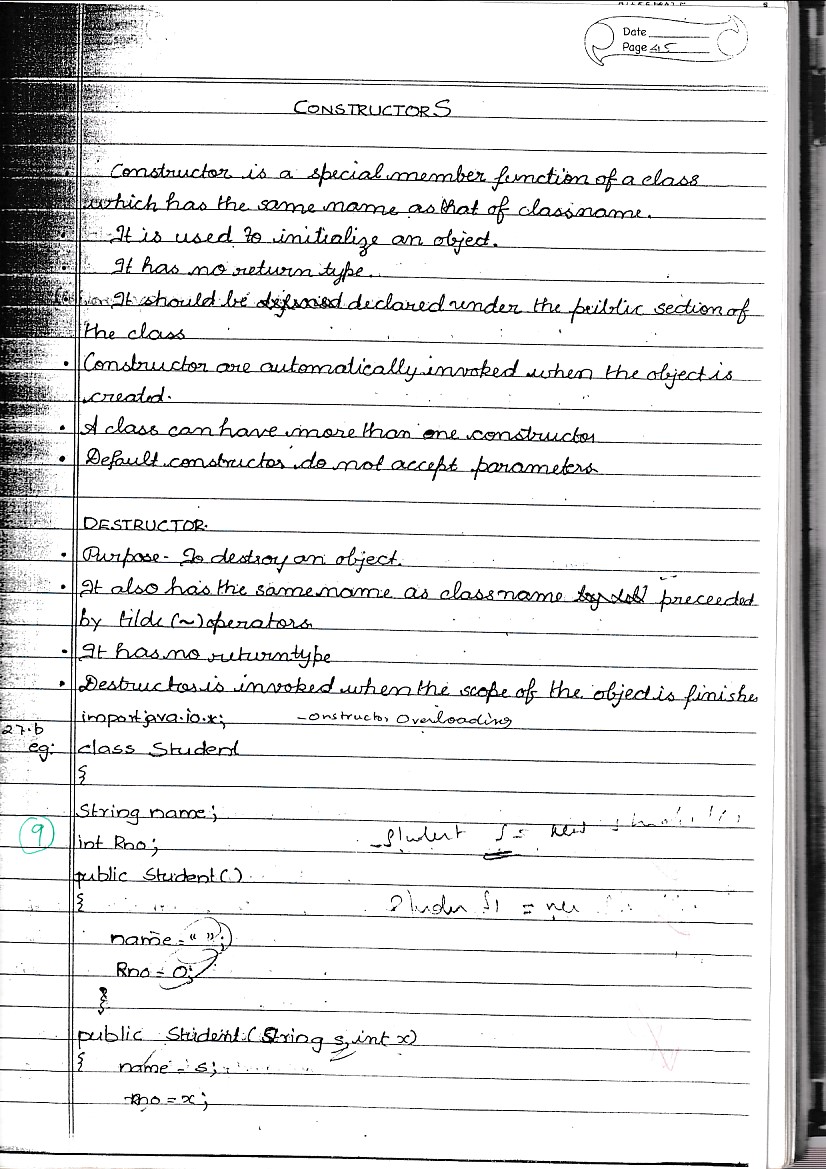 Date
Page 45
CONSTRUCTORS
Constructor is a special member function of a class
which has the same name as that of classname.
It is used to initialize an object.
It has no return type.
It should be declared under the public section of
the class
• Constructor are automatically invoked when the object is
created.
• A class can have more than one constructor
• Default constructor do not accept parameters
DESTRUCTOR.
• Purpose - To destroy an object.
• It also has the same name as classname preceeded
by tilde (~) operators
• It has no returntype
• Destructor is invoked when the scope of the object is finishe
import java.io.x; onstructor Overloading
27.b
eg: class Student
{
String name;
9
int Rno;
Student S = new
public Student()
{
S1 = new
name = " ";
Rno = 0;
}
public Student (String s, int x)
{ name = s;
rno = x;